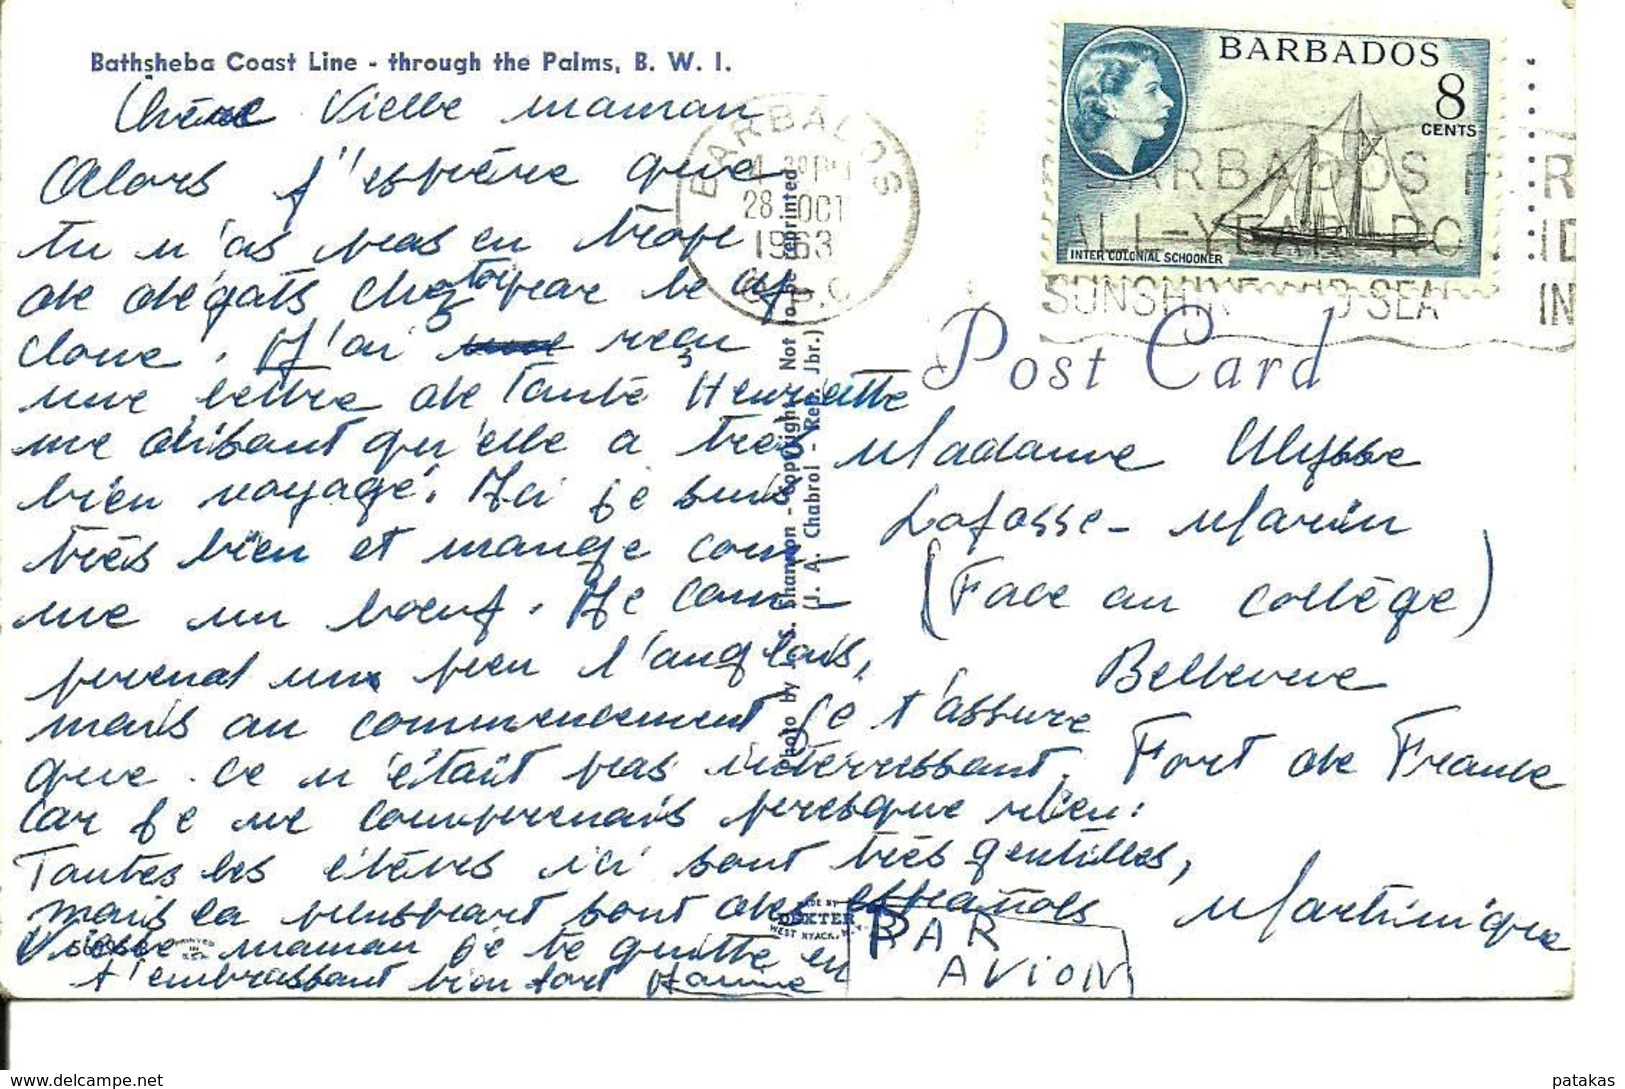 Bathsheba Coast Line - through the Palms, B. W. I.
Chère Vielle maman
Alors j'espère que
tu n'as pas eu trop
de dégats chez toi par le cy
clone. J'ai reçu
une lettre de Tante Henriette
me disant qu'elle a très
bien voyagé. Ici je suis
très bien et mange com-
me un boeuf. Je com-
prend un peu l'anglais,
mais au commencement je t'assure
que ce n'était pas interressant,
car je ne comprenais presque rien:
Toutes les élèves ici sont très gentilles,
mais la pluspart sont des espagnols
Vielle maman je te quitte en
t'embrassant bien fort
BARBADOS
28 OCT
1963
G.P.O
BARBADOS
8
CENTS
INTER COLONIAL SCHOONER
BARBADOS
ALL-YEAR RO
SUNSHINE D SEA
R
ID
IN
Post Card
Photo by S. Shannon - Copyright. Not to be reprinted
(J. A. Chabrol - Rep. Jbr.)
Madame Ulysse
Lafosse - Marin
(Face au collège)
Bellevue
Fort de France
Martinique
PAR
AVION
MADE BY
DEXTER
WEST NYACK, N.Y.
PRINTED
IN
delcampe.net
patakas